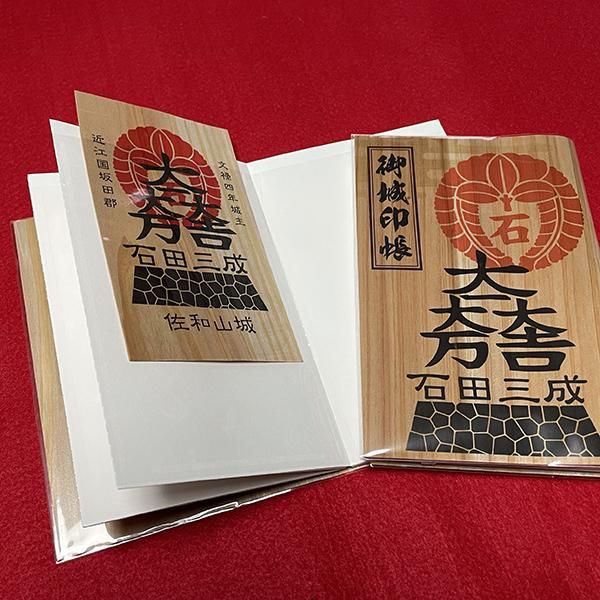 近江国坂田郡
文禄四年城主
大一大万大吉
石田三成
佐和山城
御城印帳
石
大一大万大吉
石田三成